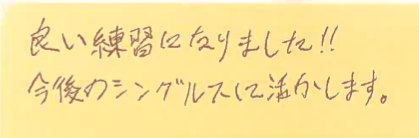 良い練習になりました!!
今後のシングルスに活かします。